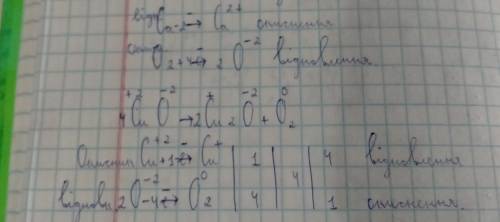 відн Ca - 2e̅ → Ca²⁺ окиснення
O₂ + 4e̅ → 2 O⁻² відновлення
4 Cu⁺² O⁻² → 2 Cu⁺₂ O⁻² + O₂⁰
Окисник Cu⁺² + 1e̅ → Cu⁺ | 1 | 4 | 4 відновлення
віднови 2 O⁻² - 4e̅ → O₂⁰ | 4 | | 1 окиснення.